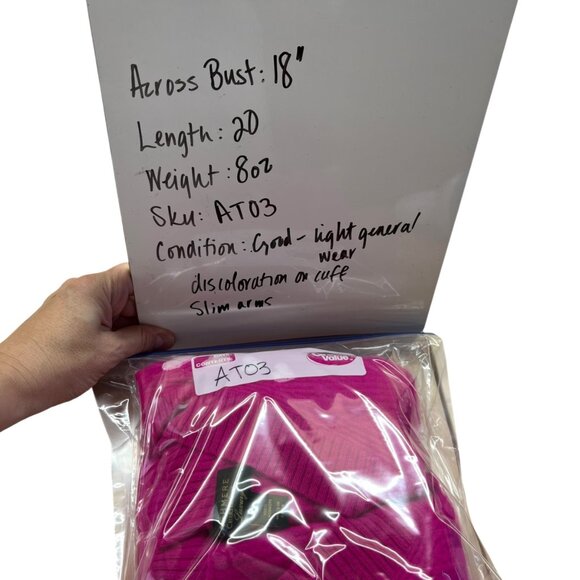 Across Bust: 18"
Length: 20
Weight: 8oz
Sku: AT03
Condition: Good - light general
wear
discoloration on cuff
Slim arms
DATE
CONTENTS
Value
AT03